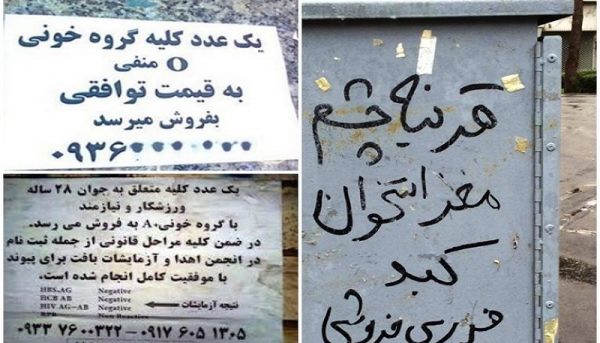 یک عدد کلیه گروه خونی
O منفی
به قیمت توافقی
بفروش میرسد
۰۹۳۶
یک عدد کلیه متعلق به جوان ۲۸ ساله
ورزشکار و نیازمند
با گروه خونی A+ به فروش می رسد.
در ضمن کلیه مراحل قانونی از جمله ثبت نام
در انجمن اهدا و آزمایشات بافت برای پیوند
با موفقیت کامل انجام شده است.
HBS.AG Negative
HCB AB Negative
HIV AG-AB Negative نتیجه آزمایشات
RPR Non Reactive
۰۹۳۳ ۷۶۰۰۳۲۲ - ۰۹۱۷ ۶۰۵ ۱۳۰۵
قرنیه چشم
مغز استخوان
کبد
فوری فروشی